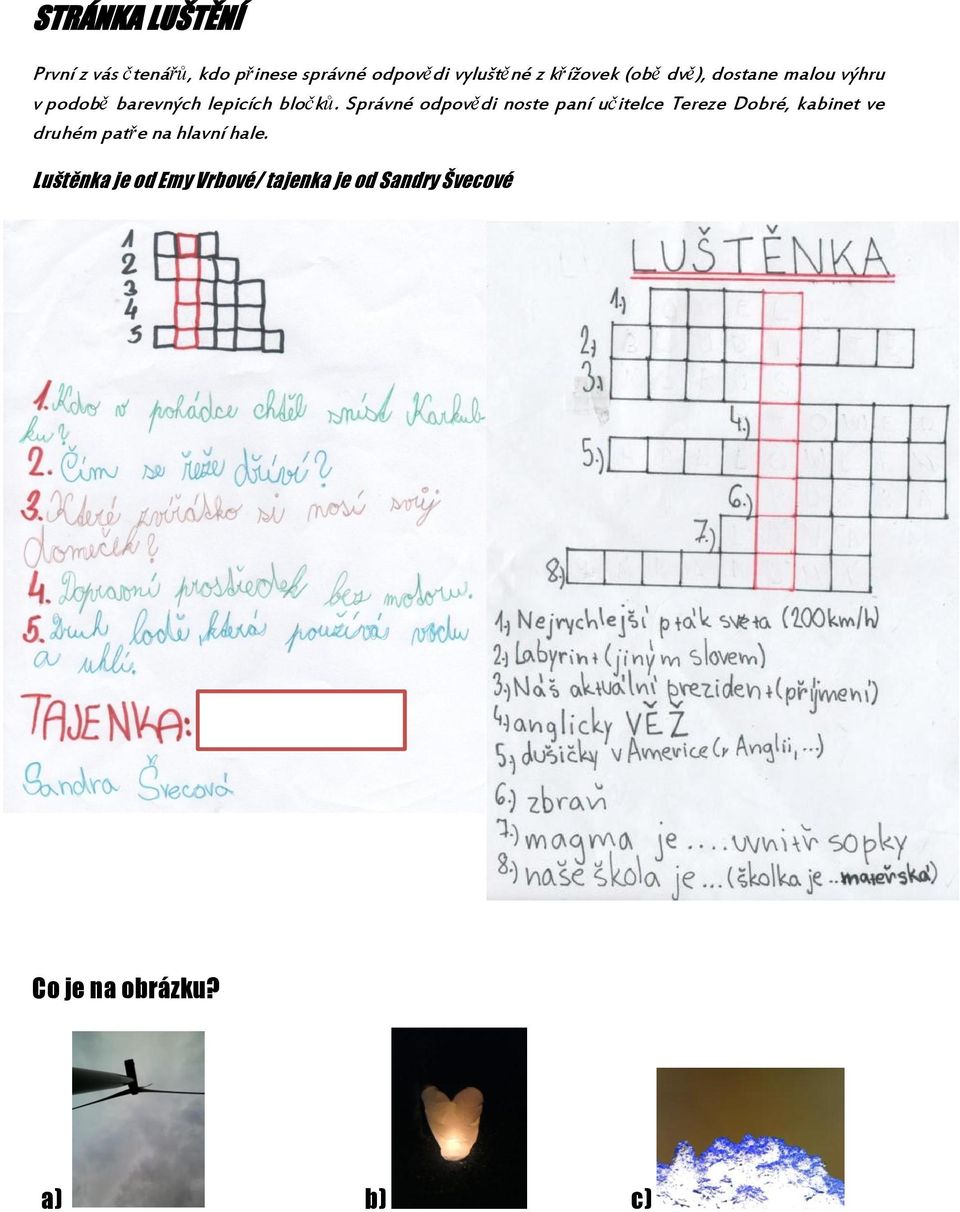 STRÁNKA LUŠTĚNÍ
První z vás čtenářů, kdo přinese správné odpovědi vyluštěné z křížovek (obě dvě), dostane malou výhru
v podobě barevných lepicích bločků. Správné odpovědi noste paní učitelce Tereze Dobré, kabinet ve
druhém patře na hlavní hale.
Luštěnka je od Emy Vrbové/ tajenka je od Sandry Švecové
1
2
3
4
5
1. Kdo v pohádce chtěl sníst Karkul-
ku?
2. Čím se řeže dříví?
3. Které zvířátko si nosí svůj
domeček?
4. Dopravní prostředek bez motoru.
5. Druh lodě, která používá vodu
a uhlí.
TAJENKA:
Sandra Švecová
LUŠTĚNKA
1.)
2.)
3.)
4.)
5.)
6.)
7.)
8.)
1.) Nejrychlejší pták světa (200km/h)
2.) Labyrint (jiným slovem)
3.) Náš aktuální prezident (příjmení)
4.) anglicky VĚŽ
5.) dušičky v Americe (v Anglii, ...)
6.) zbraň
7.) magma je .... uvnitř sopky
8.) naše škola je ... (školka je .. mateřská)
Co je na obrázku?
a)
b)
c)